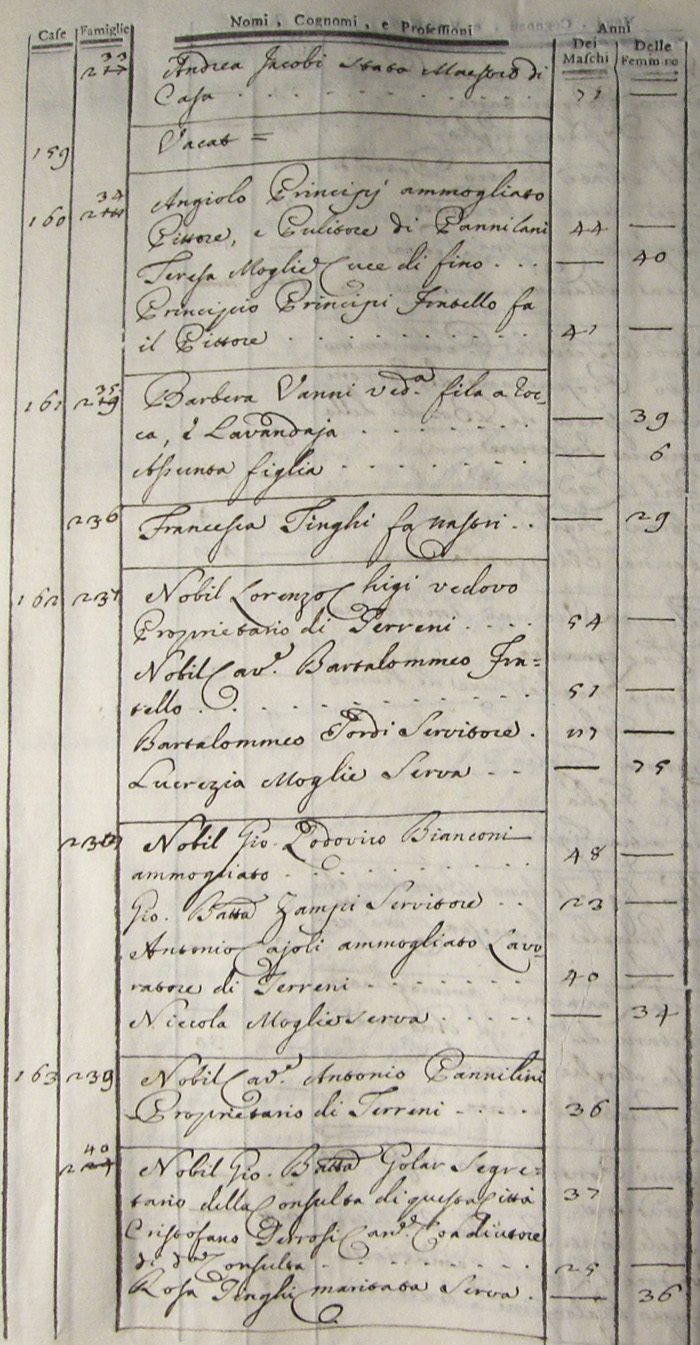 Case Famiglie Nomi, Cognomi, e Professioni Anni
Dei Maschi Delle Femmine
33
Andrea Jacobi Maestro di
Casa . . . 71 —
159 Vacat =
34
160 Angiolo Principj ammogliato
Pittore, e Pulitore di Pannilani 44 —
Teresa Moglie Cuce di fino . . . — 40
Principio Principi Fratello fa
il Pittore . . . 41 —
35
161 Barbera Vanni ved.a fila a roc-
ca, è Lavandaja . . . — 39
Assunta figlia . . . — 6
236 Francesca Tinghi fa nastri . . — 29
162 237 Nobil Lorenzo Chigi vedovo
Proprietario di Terreni . . . . 54 —
Nobil Cav.e Bartalommeo Fra=
tello . . . 51 —
Bartalommeo Servitore . 77 —
Lucrezia Moglie Serva . . — 75
Nobil Gio. Lodovico Bianconi
ammogliato . . . 48 —
Gio. Batta Zampi Servitore . . 23 —
Antonio Cajoli ammogliato Lavo-
ratore di Terreni . . . 40 —
Niccola Moglie Serva . . . — 34
163 239 Nobil Cav.e Antonio Pannilini
Proprietario di Terreni . . . . 36 —
40
Nobil Gio. Batta Segre=
tario della Consulta di questa Città 37 —
Cristofano
di d.a Consulta . . . 25 —
Rosa Tinghi maritata Serva . — 36